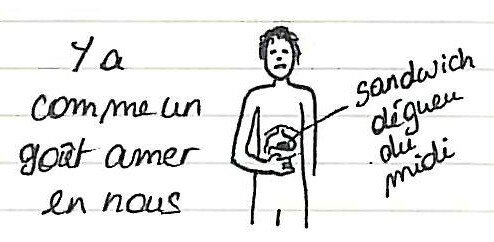 Y a
comme un
goût amer
en nous
sandwich
dégueu
du
midi